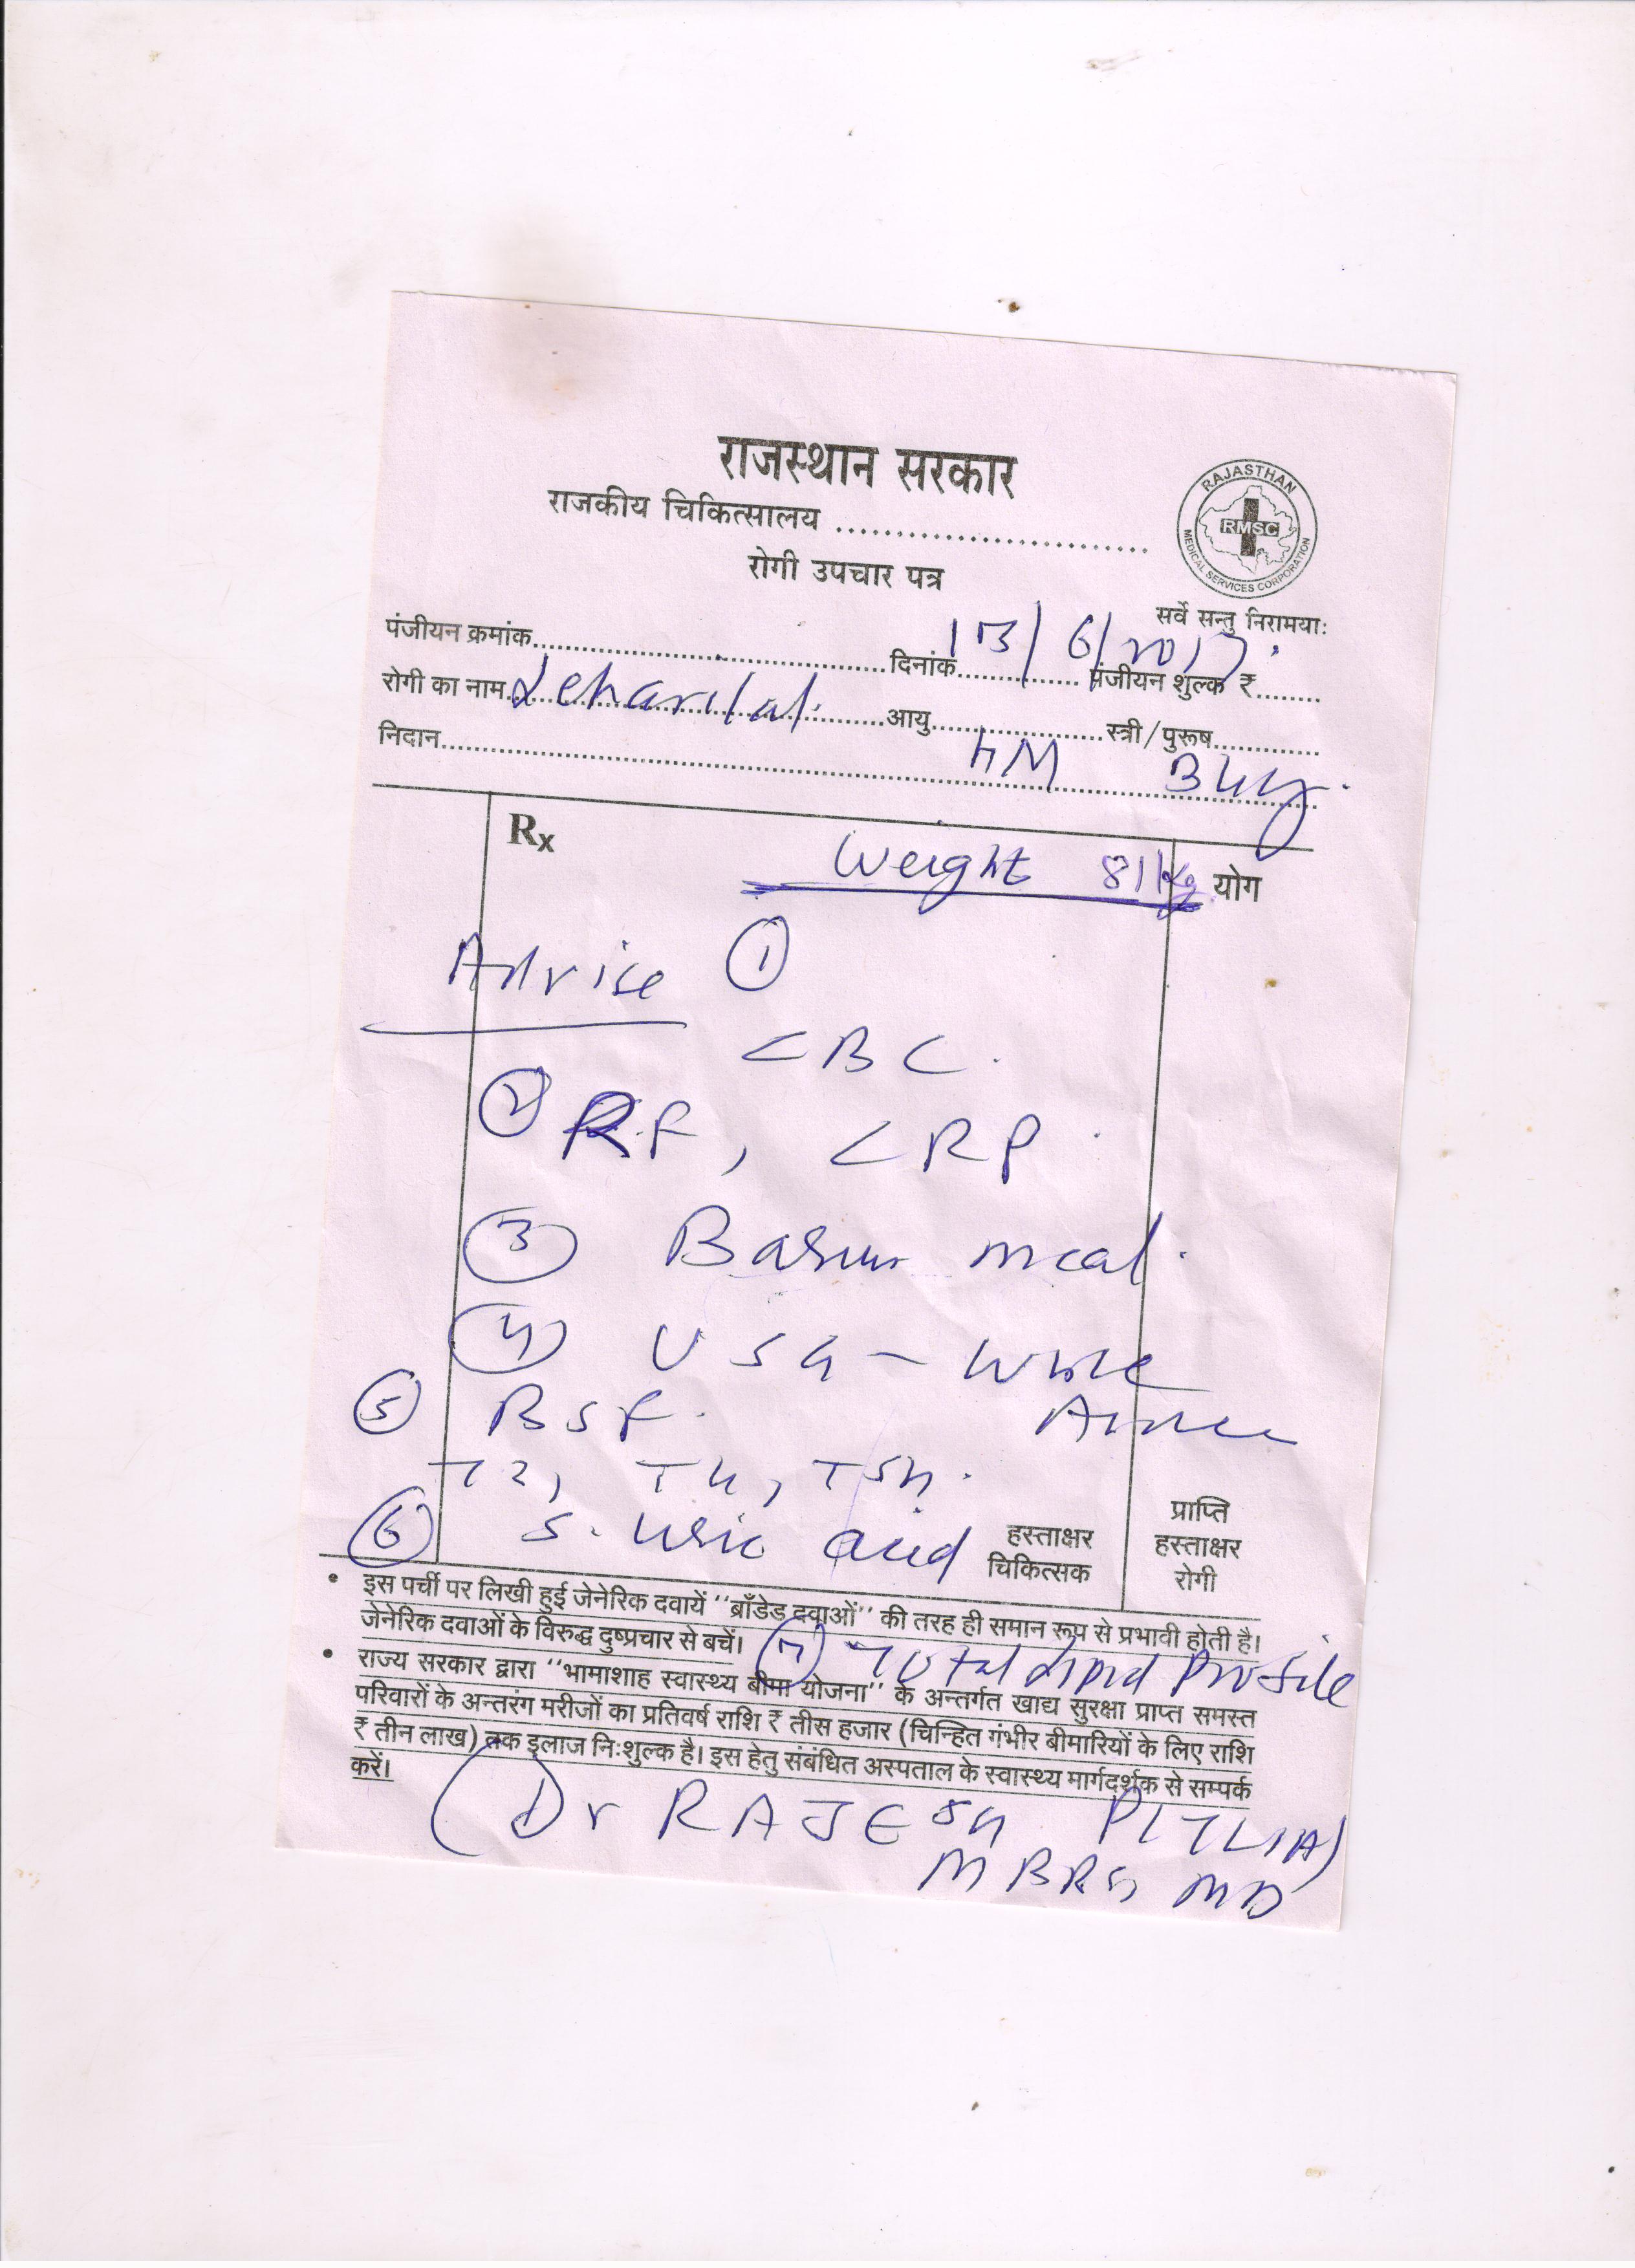 राजस्थान सरकार
राजकीय चिकित्सालय ..............................
रोगी उपचार पत्र
RAJASTHAN
RMSC
MEDICAL SERVICES CORPORATION
सर्वे सन्तु निरामयाः
पंजीयन क्रमांक.................... दिनांक 13/6/2017 पंजीयन शुल्क ₹........
रोगी का नाम Leharilal आयु.................... स्त्री/पुरूष............
निदान....................
Rx
Weight 81 kg योग
Advice ①
CBC.
② RF, CRP.
③ Barium meal.
④ USG -
⑤ BSF.
T3, T4, TSH.
⑥ S. Uric acid
हस्ताक्षर
चिकित्सक
प्राप्ति
हस्ताक्षर
रोगी
• इस पर्ची पर लिखी हुई जेनेरिक दवायें ''ब्राँडेड दवाओं'' की तरह ही समान रूप से प्रभावी होती है।
जेनेरिक दवाओं के विरुद्ध दुष्प्रचार से बचें।
⑦ Total Lipid Profile
• राज्य सरकार द्वारा ''भामाशाह स्वास्थ्य बीमा योजना'' के अन्तर्गत खाद्य सुरक्षा प्राप्त समस्त
परिवारों के अन्तरंग मरीजों का प्रतिवर्ष राशि ₹ तीस हजार (चिन्हित गंभीर बीमारियों के लिए राशि
₹ तीन लाख) तक इलाज निःशुल्क है। इस हेतु संबंधित अस्पताल के स्वास्थ्य मार्गदर्शक से सम्पर्क
करें।
(Dr RAJESH PITLIA)
MBBS MD